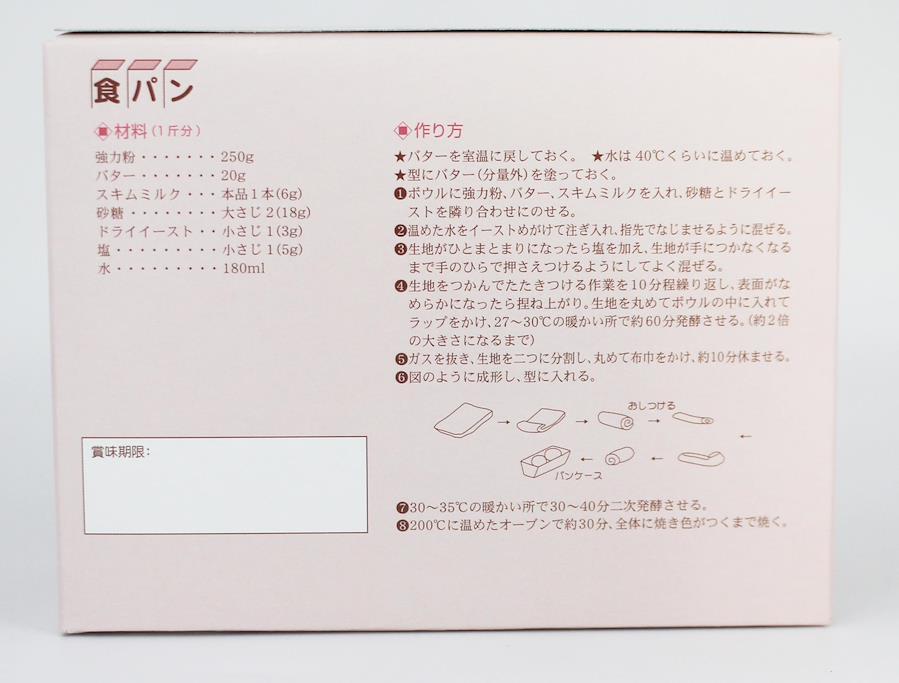 食パン
材料(1斤分)
強力粉・・・・・・・250g
バター・・・・・・・20g
スキムミルク・・・本品1本(6g)
砂糖・・・・・・・・大さじ2(18g)
ドライイースト・・小さじ1(3g)
塩・・・・・・・・・小さじ1(5g)
水・・・・・・・・・180ml
賞味期限:
作り方
★バターを室温に戻しておく。 ★水は40℃くらいに温めておく。
★型にバター(分量外)を塗っておく。
❶ボウルに強力粉、バター、スキムミルクを入れ、砂糖とドライイー
ストを隣り合わせにのせる。
❷温めた水をイーストめがけて注ぎ入れ、指先でなじませるように混ぜる。
❸生地がひとまとまりになったら塩を加え、生地が手につかなくなる
まで手のひらで押さえつけるようにしてよく混ぜる。
❹生地をつかんでたたきつける作業を10分程繰り返し、表面がな
めらかになったら捏ね上がり。生地を丸めてボウルの中に入れて
ラップをかけ、27〜30℃の暖かい所で約60分発酵させる。(約2倍
の大きさになるまで)
❺ガスを抜き、生地を二つに分割し、丸めて布巾をかけ、約10分休ませる。
❻図のように成形し、型に入れる。
おしつける
パンケース
❼30〜35℃の暖かい所で30〜40分二次発酵させる。
❽200℃に温めたオーブンで約30分、全体に焼き色がつくまで焼く。